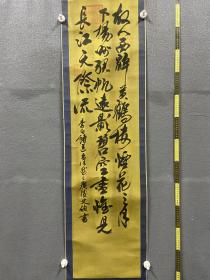 故人西辭黃鶴樓煙花三月
下揚州孤帆遠影碧空盡惟見
長江天際流
李白詩
書